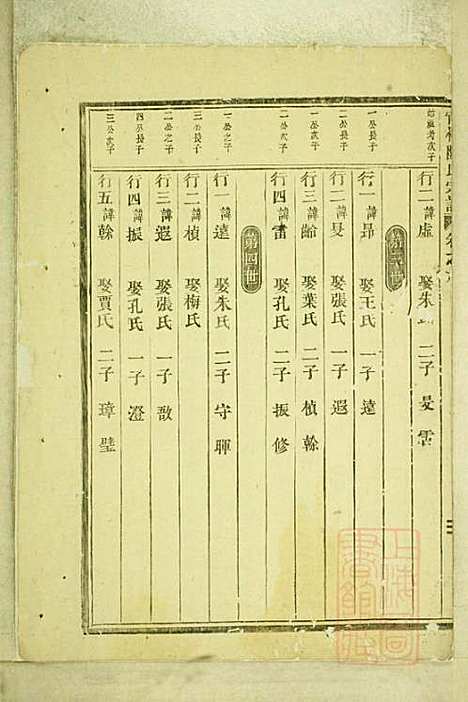 行二諱虛 娶朱氏 二子 旻 雷
第三世
一公長子 行一諱昂 娶王氏 一子 達
二公長子 行二諱旻 娶張氏 一子 遐
一公次子 行三諱齡 娶葉氏 二子 楨 榦
二公次子 行四諱雷 娶孔氏 二子 振 修
第四世
一公之子 行一諱達 娶朱氏 二子 守 暉
三公長子 行二諱楨 娶梅氏
二公之子 行三諱遐 娶張氏 一子 敔
四公長子 行四諱振 娶孔氏 一子 澄
三公次子 行五諱榦 娶賈氏 二子 璋 璧